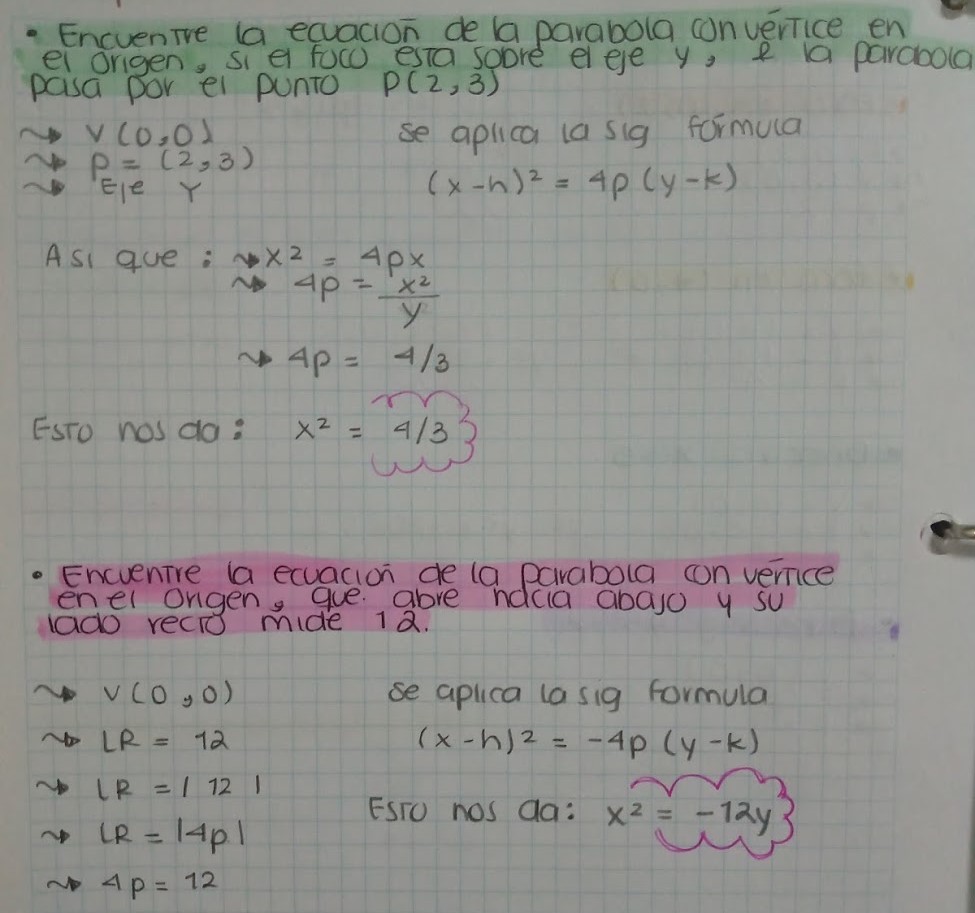 • Encuentre la ecuación de la parabola con vértice en
el origen, si el foco esta sobre el eje y, & la parabola
pasa por el punto P(2,3)
⇝ V(0,0) se aplica la sig fórmula
⇝ P = (2,3)
⇝ Eje Y (x-h)² = 4p(y-k)
Asi que : ⇝ x² = 4px
⇝ 4p = x²/y
⇝ 4p = 4/3
Esto nos da: x² = 4/3
• Encuentre la ecuación de la parabola con vértice
en el origen, que abre hacia abajo y su
lado recto mide 12.
⇝ V(0,0) se aplica la sig formula
⇝ LR = 12 (x-h)² = -4p(y-k)
⇝ LR = |12|
Esto nos da: x² = -12y
⇝ LR = |4p|
⇝ 4p = 12